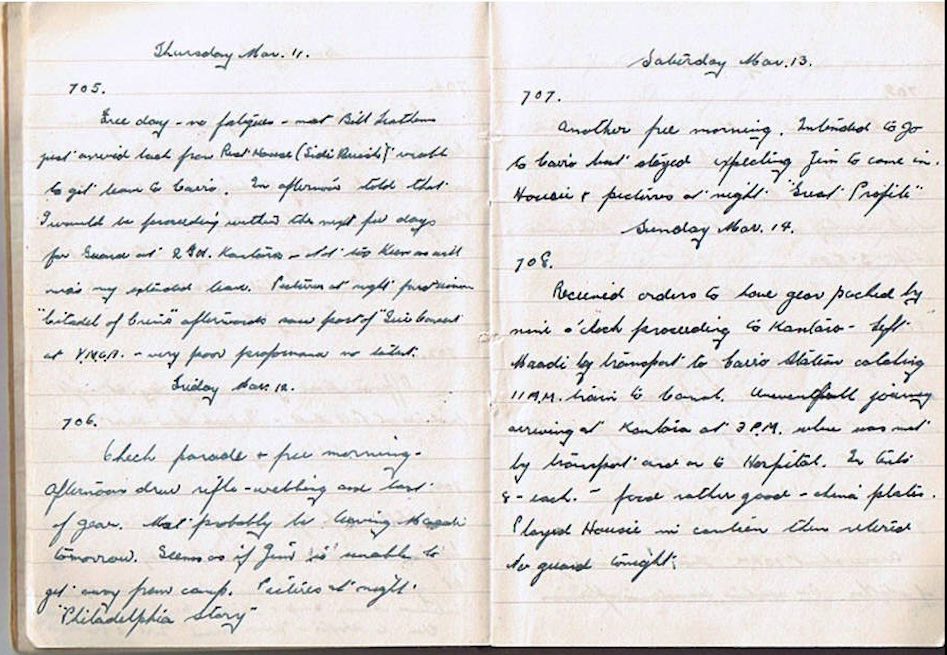 Thursday Mar. 11.
705.
Free day - no fatigues - met Bill
just arrived back from Rest House (Sidi Bishr) unable
to get leave to Cairo. In afternoon told that
I would be proceeding within the next few days
for Guard at 2 Kantara - Not too keen as will
miss my extended leave. Pictures at night
"Citadel of Crime" afterwards saw part of Concert
at Y.M.C.A. - very poor no talent.
Friday Mar. 12.
706.
Check parade & free morning -
Afternoon drew rifle - webbing and last
of gear. Most probably be leaving Maadi
tomorrow. Seems as if Jim is unable to
get away from camp. Pictures at night
"Philadelphia Story"
Saturday Mar. 13.
707.
Another free morning. Intended to go
to Cairo but stayed expecting Jim to come in.
Housie & pictures at night "Great Profile"
Sunday Mar. 14.
708.
Received orders to have gear packed by
nine o'clock proceeding to Kantara - Left
Maadi by transport to Cairo Station catching
11 A.M. train to Canal. Uneventfull journey
arriving at Kantara at 3 P.M. where was met
by transport and on to Hospital. In tents
8 - each. - food rather good - china plates.
Played Housie in canteen then retired
No guard tonight.